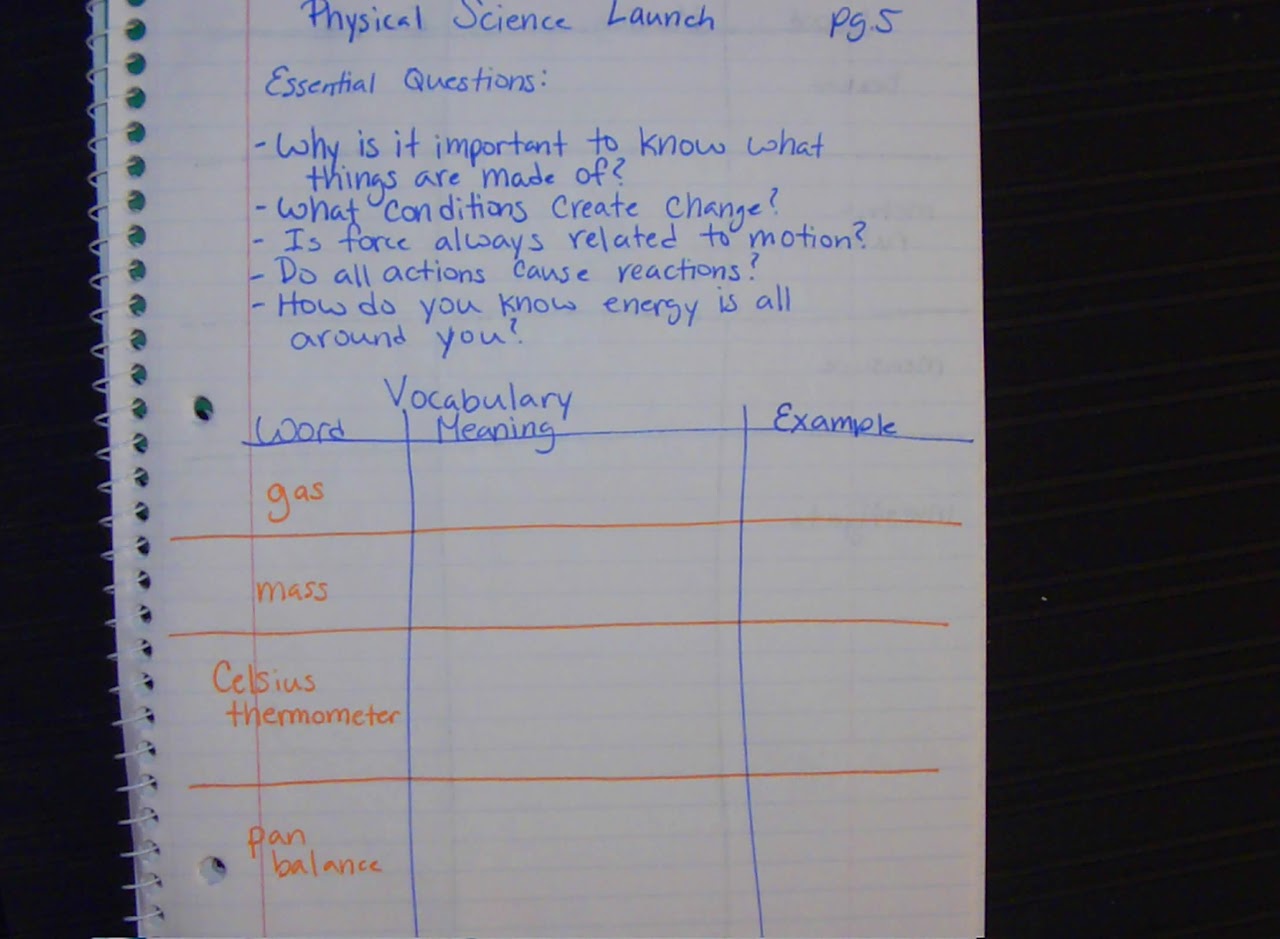 Physical Science Launch pg.5
Essential Questions:
- Why is it important to know what
things are made of?
- What conditions create change?
- Is force always related to motion?
- Do all actions cause reactions?
- How do you know energy is all
around you?
Vocabulary
Word Meaning Example
gas
mass
Celsius
thermometer
pan
balance